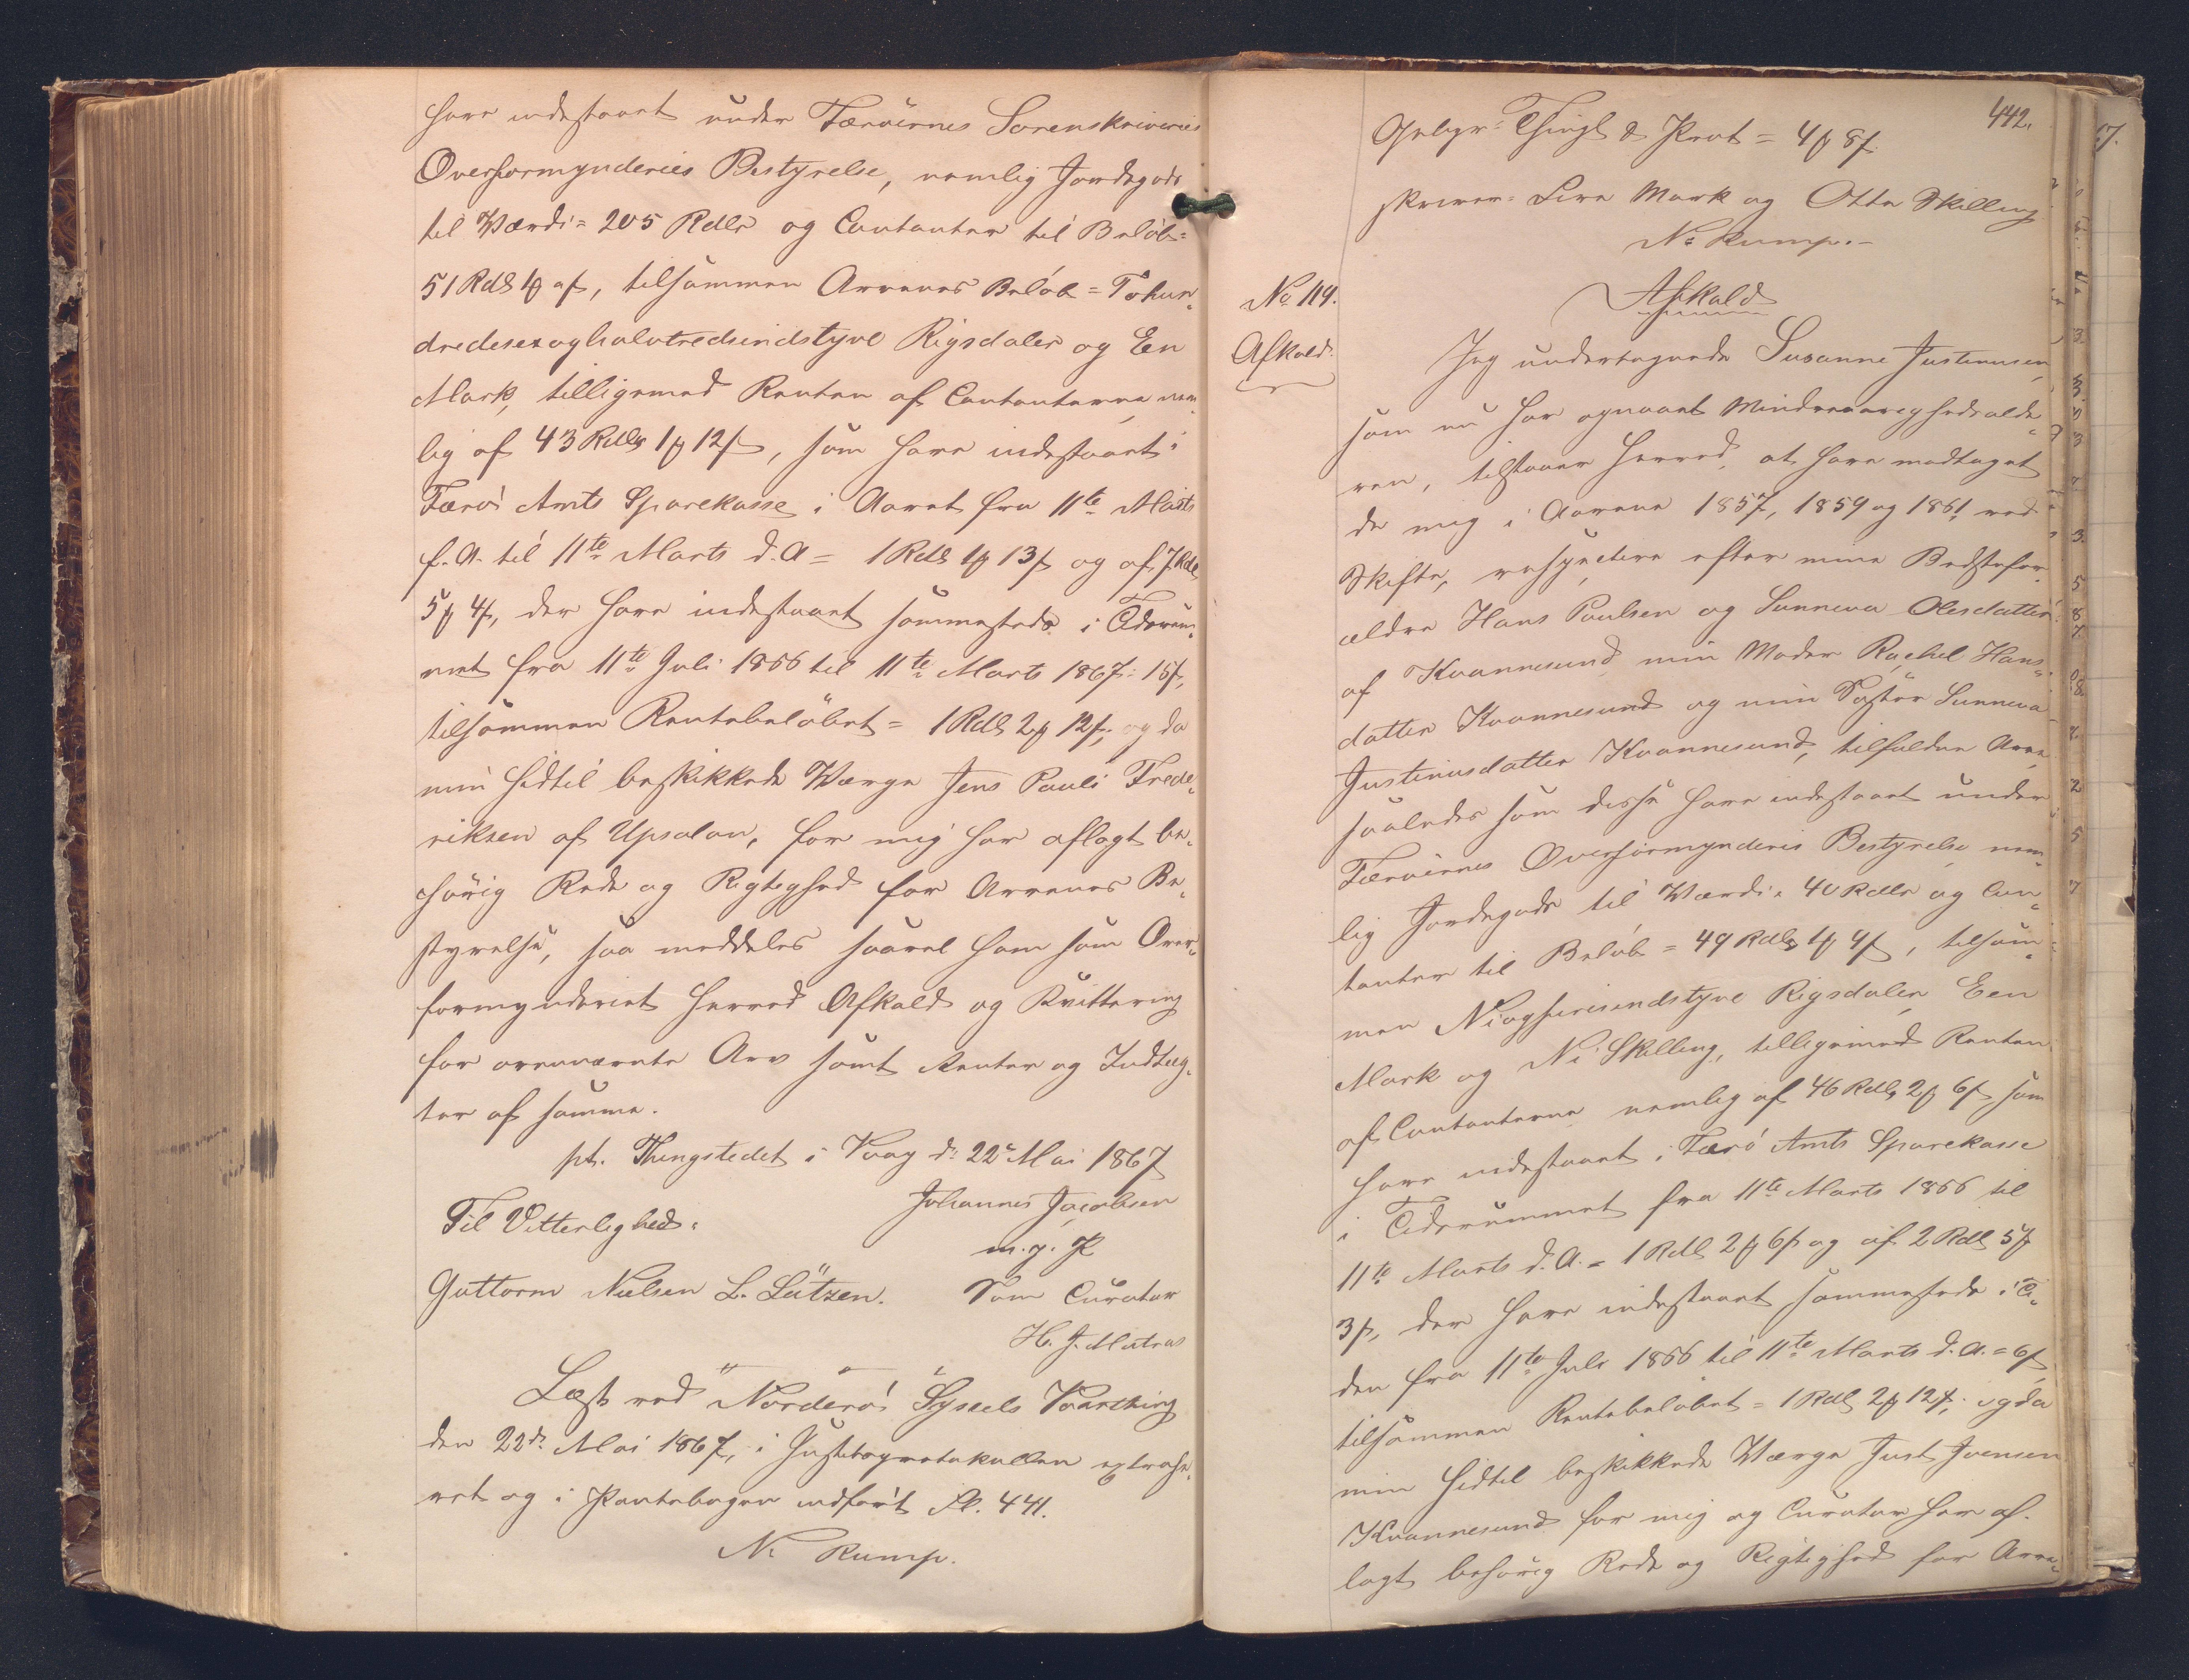 have indestaaet under Færøernes Sorenskriveries
Overformynderies Bestyrelse, nemlig Jordegods
til Værdi = 205 Rdlr og Contanter til Beløb =
51 Rdl 1 ℳ af, tilsammen Arvenes Beløb = Tohun„
dredesexoghalvtredsindstyve Rigsdaler og Een
Mark, tilligemed Renten af Contanterne nem„
lig af 43 Rdlr 1 ℳ 12 ß, som have indestaaet i
Færø Amts Sparekasse i Aaret fra 11te Marts
f. A. til 11te Marts d. A = 1 Rdl 1 ℳ 13 ß og af 7 Rdl
5 ℳ 4 ß, der have indestaaet sammesteds i Tidsrum„
met fra 11te Juli 1866 til 11te Marts 1867 = 15 ß,
tilsammen Rentebeløbet = 1 Rdl 2 ℳ 12 ß; og da
min hidtil beskikkede Værge Jens Pauli Frede„
riksen af Upsalon, for mig har aflagt be„
hørig Rede og Rigtighed for Arvenes Be„
styrelse, saa meddeles saavel ham som Over„
formynderiet herved Afkald og Kvittering
for ovennævnte Arv samt Renter og Indtæg„
ter af samme.
pt. Thingstedet i Vaag d. 22de Mai 1867
Johannes Jacobsen
Til Vitterlighed:
m. g. P
Guttorm Nielsen L. Lützen. Som Curator
H. J. Matras
Læst ved Norderø Syssels Vaarthing
den 22de Mai 1867, i Justitsprotokollen extrahe„
ret og i Pantebogen indført Fol. 441.
N. Rump.
442.
Gebyr = Thingl & Prot = 4 ℳ 8 ß
skriver = Fire Mark og Otte Skilling
N. Rump.
No 114.
Afkald
Afkald
Jeg undertegnede Susanne Justinussen,
som nu har opnaaet Mindreaarighedsalde„
ren, tilstaaer herved, at have modtaget
de mig i Aarene 1857, 1859 og 1861 ved
Skifte, respective efter mine Bedstefor„
ældre Hans Poulsen og Sunneva Olesdatter
af Kvannesund, min Moder Rachel Hans„
datter Kvannesund og min Søster Sunneva
Justinusdatter Kvannesund, tilfaldne Arve,
saaledes som disse have indestaaet under
Færøernes Overformynderies Bestyrelse, nem„
lig Jordegods til Værdi = 40 Rdlr og Con„
tanter til Beløb = 49 Rdlr 1 ℳ 9 ß, tilsam„
men Niogfirsindstyve Rigsdaler, Een
Mark og Ni Skilling, tilligemed Renten
af Contanterne nemlig af 46 Rdlr 2 ℳ 6 ß som
have indestaaet i Færø Amts Sparekasse
i Tidsrummet fra 11te Marts 1866 til
11te Marts d. A. = 1 Rdl 2 ℳ 6 ß og af 2 Rdl 5 ℳ
3 ß, der have indestaaet sammesteds i Ti„
den fra 11te Juli 1866 til 11te Marts d. A. = 6 ß,
tilsammen Rentebeløbet = 1 Rdl 2 ℳ 12 ß; og da
min hidtil beskikkede Værge Just Joensen
Kvannesund for mig og Curator har af„
lagt behørig Rede og Rigtighed for Arve„